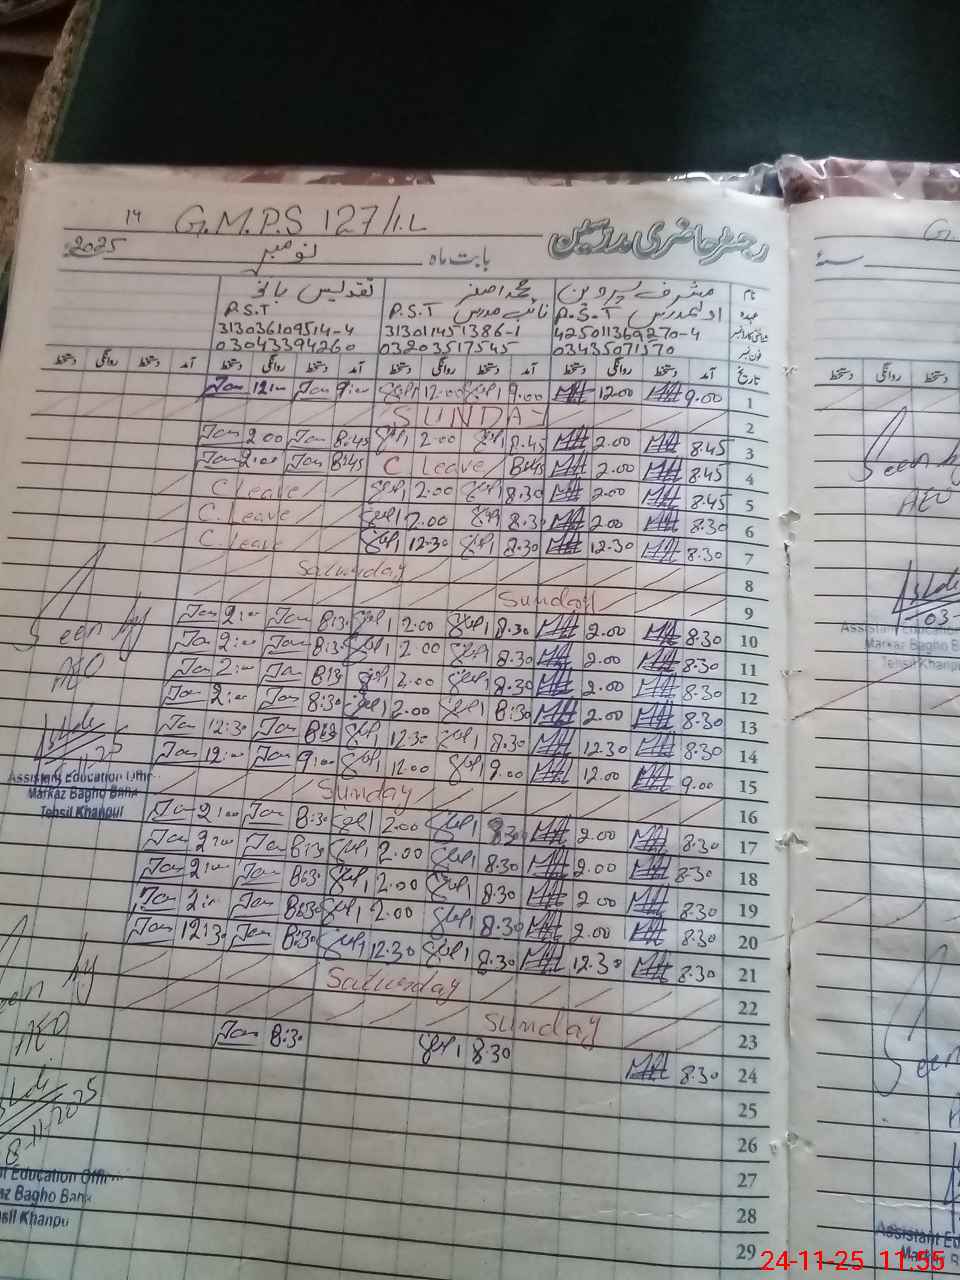 14 G.M.P.S 127/1.L
رجسٹر حاضری مدرسین
بابت ماہ نومبر 2025
نام مشرف پروین محمد اصغر تقدیس بانو
عہدہ P.S.T نائب مدرس P.S.T P.S.T
425011369270-4 313011451386-1 313036109514-4
فون نمبر 03435071570 03203517545 03043394260
تاریخ آمد دستخط روانگی دستخط آمد دستخط روانگی دستخط آمد دستخط روانگی دستخط آمد دستخط روانگی دستخط
1 9.00 12.00 9.00 12.00 9:00 12:00
2 SUNDAY
3 8.45 2.00 8.45 2.00 8:45 2 00
4 8.45 2.00 8:45 C Leave 8:45 2:00
5 8.45 2.00 8.30 2.00 C Leave
6 8.30 2.00 8.30 2.00 C. Leave
7 8.30 12.30 8.30 12.30 C. Leave
8 Saturday
9 Sunday
10 8.30 2.00 8.30 2.00 8:30 2:00
11 8.30 2.00 8.30 2.00 8:30 2:00
12 8.30 2.00 8.30 2.00 8:30 2:00
13 8.30 2.00 8.30 2.00 8:30 2:00
14 8.30 12.30 8.30 12.30 8:30 12:30
15 9.00 12.00 9.00 12.00 9:00 12:00
16 Sunday
17 8.30 2.00 8.30 2.00 8:30 2:00
18 8.30 2.00 8.30 2.00 8:30 2:00
19 8.30 2.00 8.30 2.00 8:30 2:00
20 8.30 2.00 8.30 2.00 8:30 2:00
21 8.30 12.30 8.30 12.30 8:30 12:30
22 Saturday
23 Sunday
24 8.30 8.30 8:30
25
26
27
28
29
Seen by
AEO
Assistant Education Offi
Markaz Bagho Bahar
Tehsil Khanpur
een by
AEO
8-11-2025
Education Offi
az Bagho Bahar
sil Khanpu
G.
سنۂ
آمد دستخط روانگی دستخط
Seen by
AEO
03-
Assistant Education
Markaz Bagho B
Tehsil Khanpu
Seen
Assistant Ed
Mark
24-11-25 11:55